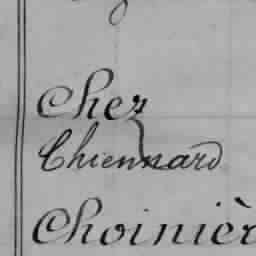 Chez
Chiennard
Choinièr